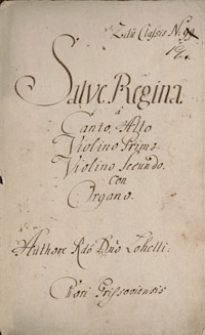 2da Classis N. 
19.
Salve Regina.
à
Canto, Alto
Violino Primo
Violino Secundo.
Con
Organo.
Authore Rdo Dno Zohelli.
Chori Grissoviensis